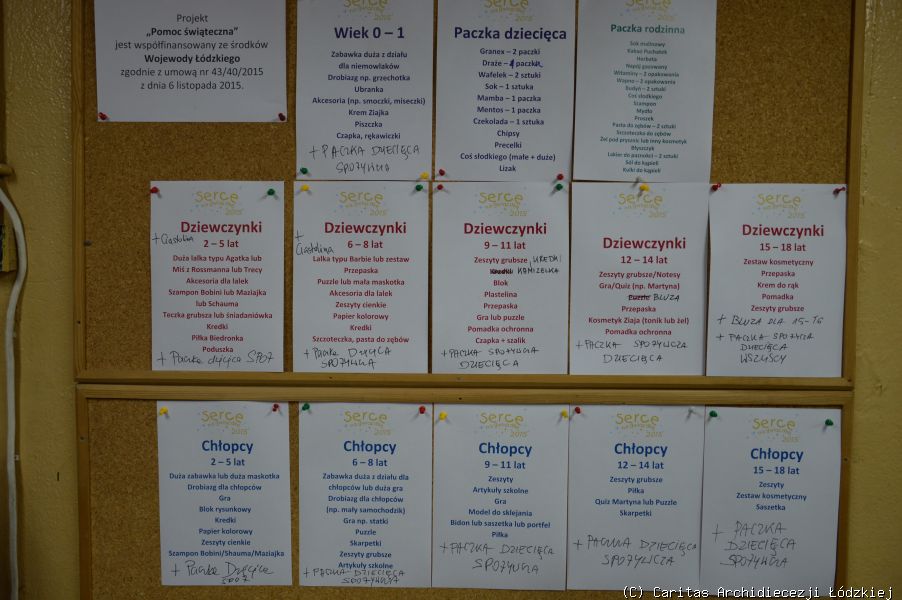 Projekt
„Pomoc świąteczna”
jest współfinansowany ze środków
Wojewody Łódzkiego
zgodnie z umową nr 43/40/2015
z dnia 6 listopada 2015.
serce
2015
Wiek 0 – 1
Zabawka duża z działu
dla niemowlaków
Drobiazg np. grzechotka
Ubranka
Akcesoria (np. smoczki, miseczki)
Krem Ziajka
Piszczka
Czapka, rękawiczki
+ PACZKA DZIECIĘCA
SPOŻYWCZA
serce
2015
Paczka dziecięca
Granex – 2 paczki
Draże – 1 paczka
Wafelek – 2 sztuki
Sok – 1 sztuka
Mamba – 1 paczka
Mentos – 1 paczka
Czekolada – 1 sztuka
Chipsy
Precelki
Coś słodkiego (małe + duże)
Lizak
serce
2015
Paczka rodzinna
Sok malinowy
Kakao Puchatek
Herbata
Napój gazowany
Witaminy – 2 opakowania
Wapno – 2 opakowania
Budyń – 2 sztuki
Coś słodkiego
Szampon
Mydło
Proszek
Pasta do zębów – 2 sztuki
Szczoteczka do zębów
Żel pod prysznic lub inny kosmetyk
Błyszczyk
Lakier do paznokci – 2 sztuki
Sól do kąpieli
Kulki do kąpieli
serce
2015
Dziewczynki
2 – 5 lat
+ Ciastolina
Duża lalka typu Agatka lub
Miś z Rossmanna lub Trecy
Akcesoria dla lalek
Szampon Bobini lub Maziajka
lub Schauma
Teczka grubsza lub śniadaniówka
Kredki
Piłka Biedronka
Poduszka
+ Paczka dziecięca SPOŻ
serce
2015
Dziewczynki
6 – 8 lat
+ Ciastolina
Lalka typu Barbie lub zestaw
Przepaska
Puzzle lub mała maskotka
Akcesoria dla lalek
Zeszyty cienkie
Papier kolorowy
Kredki
Szczoteczka, pasta do zębów
+ Paczka DZIECIĘCA
SPOŻYWCZA
serce
2015
Dziewczynki
9 – 11 lat
Zeszyty grubsze, KREDKI
Kredki KAMIZELKA
Blok
Plastelina
Przepaska
Gra lub puzzle
Pomadka ochronna
Czapka + szalik
+ PACZKA SPOŻYWCZA
DZIECIĘCA
serce
2015
Dziewczynki
12 – 14 lat
Zeszyty grubsze/Notesy
Gra/Quiz (np. Martyna)
Puzzle BLUZA
Przepaska
Kosmetyk Ziaja (tonik lub żel)
Pomadka ochronna
+ PACZKA SPOŻYWCZA
DZIECIĘCA
serce
2015
Dziewczynki
15 – 18 lat
Zestaw kosmetyczny
Przepaska
Krem do rąk
Pomadka
Zeszyty grubsze
+ BLUZA DLA 15-16
+ PACZKA SPOŻYWCZA
DZIECIĘCA
WSZYSCY
serce
2015
Chłopcy
2 – 5 lat
Duża zabawka lub duża maskotka
Drobiazg dla chłopców
Gra
Blok rysunkowy
Kredki
Papier kolorowy
Zeszyty cienkie
Szampon Bobini/Shauma/Maziajka
+ Paczka Dziecięca
SPOŻ
serce
2015
Chłopcy
6 – 8 lat
Zabawka duża z działu dla
chłopców lub duża gra
Drobiazg dla chłopców
(np. mały samochodzik)
Gra np. statki
Puzzle
Skarpetki
Zeszyty grubsze
Artykuły szkolne
+ PACZKA DZIECIĘCA
SPOŻYWCZA
serce
2015
Chłopcy
9 – 11 lat
Zeszyty
Artykuły szkolne
Gra
Model do sklejania
Bidon lub saszetka lub portfel
Piłka
+ PACZKA DZIECIĘCA
SPOŻYWCZA
serce
2015
Chłopcy
12 – 14 lat
Zeszyty grubsze
Piłka
Quiz Martyna lub Puzzle
Skarpetki
+ PACZKA DZIECIĘCA
SPOŻYWCZA
serce
2015
Chłopcy
15 – 18 lat
Zeszyty
Zestaw kosmetyczny
Saszetka
+ PACZKA
DZIECIĘCA
SPOŻYWCZA
(C) Caritas Archidiecezji Łódzkiej